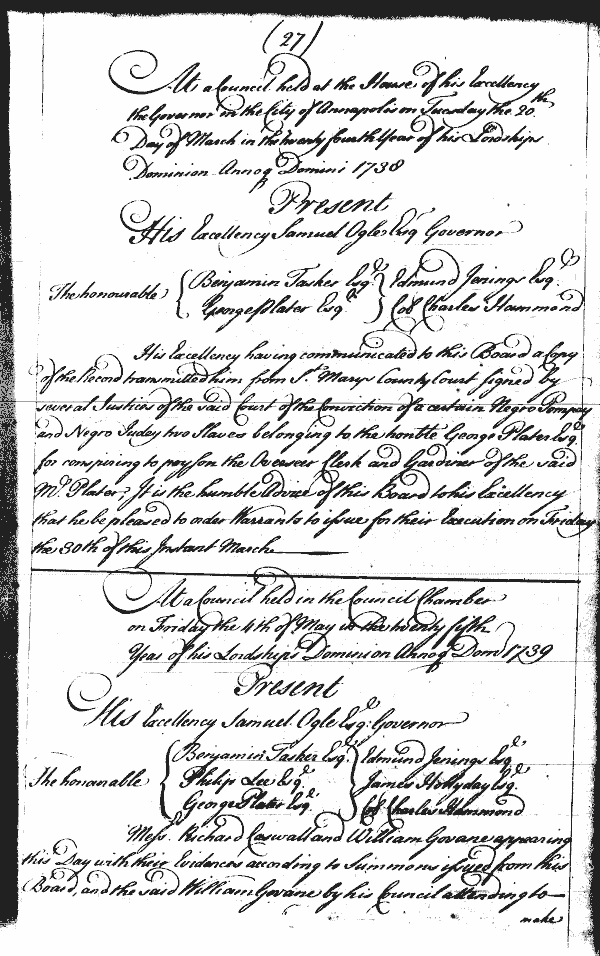 (27)
At a Council held at the House of his Excellency
the Governor in the City of Annapolis on Tuesday the 20th
Day of March in the twenty fourth Year of his Lordships
Dominion Annoq Domini 1738
Present
His Excellency Samuel Ogle Esqr Governor
The honourable { Benjamin Tasker Esqr } Edmund Jenings Esqr
George Plater Esqr Col Charles Hammond
His Excellency having communicated to this Board a Copy
of the Record transmitted him from St Marys County Court signed by
several Justices of the said Court of the Conviction of a certain Negro Pompey
and Negro Judey two Slaves belonging to the honble George Plater Esqr
for conspiring to poyson the Overseer Clerk and Gardiner of the said
Mr Plater; It is the humble Advice of this Board to his Excellency
that he be pleased to order Warrants to issue for their Execution on Friday
the 30th of this Instant March
At a Council held in the Council Chamber
on Friday the 4th of May in the twenty fifth
Year of his Lordships Dominion Annoq Dom 1739
Present
His Excellency Samuel Ogle Esqr Governor
The honourable { Benjamin Tasker Esqr } Edmund Jenings Esqr
Philip Lee Esqr James Hollyday Esqr
George Plater Esqr Col Charles Hammond
Messrs Richard Caswall and William Govane appearing
this Day with their Evidences according to Summons issued from this
Board, and the said William Govane by his Council attending to
make